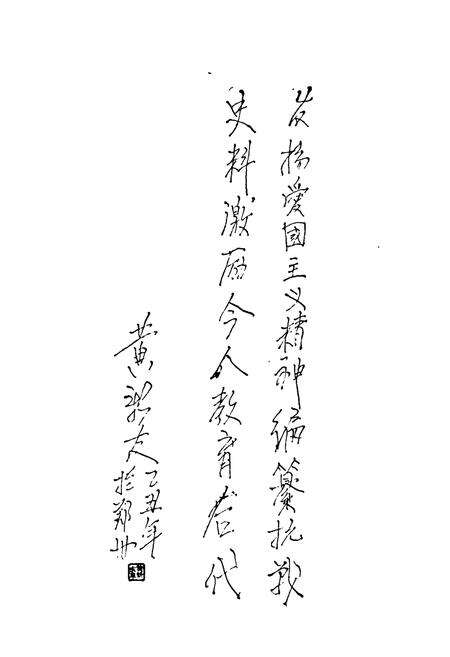 发扬愛國主义精神编纂抗战
史料激励今人教育后代
黄
乙丑年
於郑州